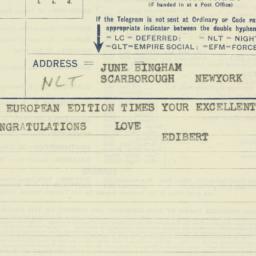 £. s. d.
(if handed in at a Post Office)
If the Telegram is not sent at Ordinary or Code ra
appropriate indicator between the double hyphen
–LC – DEFERRED: – NLT – NIGH
–GLT–EMPIRE SOCIAL: –EFM–FORCE
ADDRESS = JUNE BINGHAM
NLT SCARBOROUGH NEWYORK
EUROPEAN EDITION TIMES YOUR EXCELLENT
NGRATULATIONS LOVE
EDIBERT